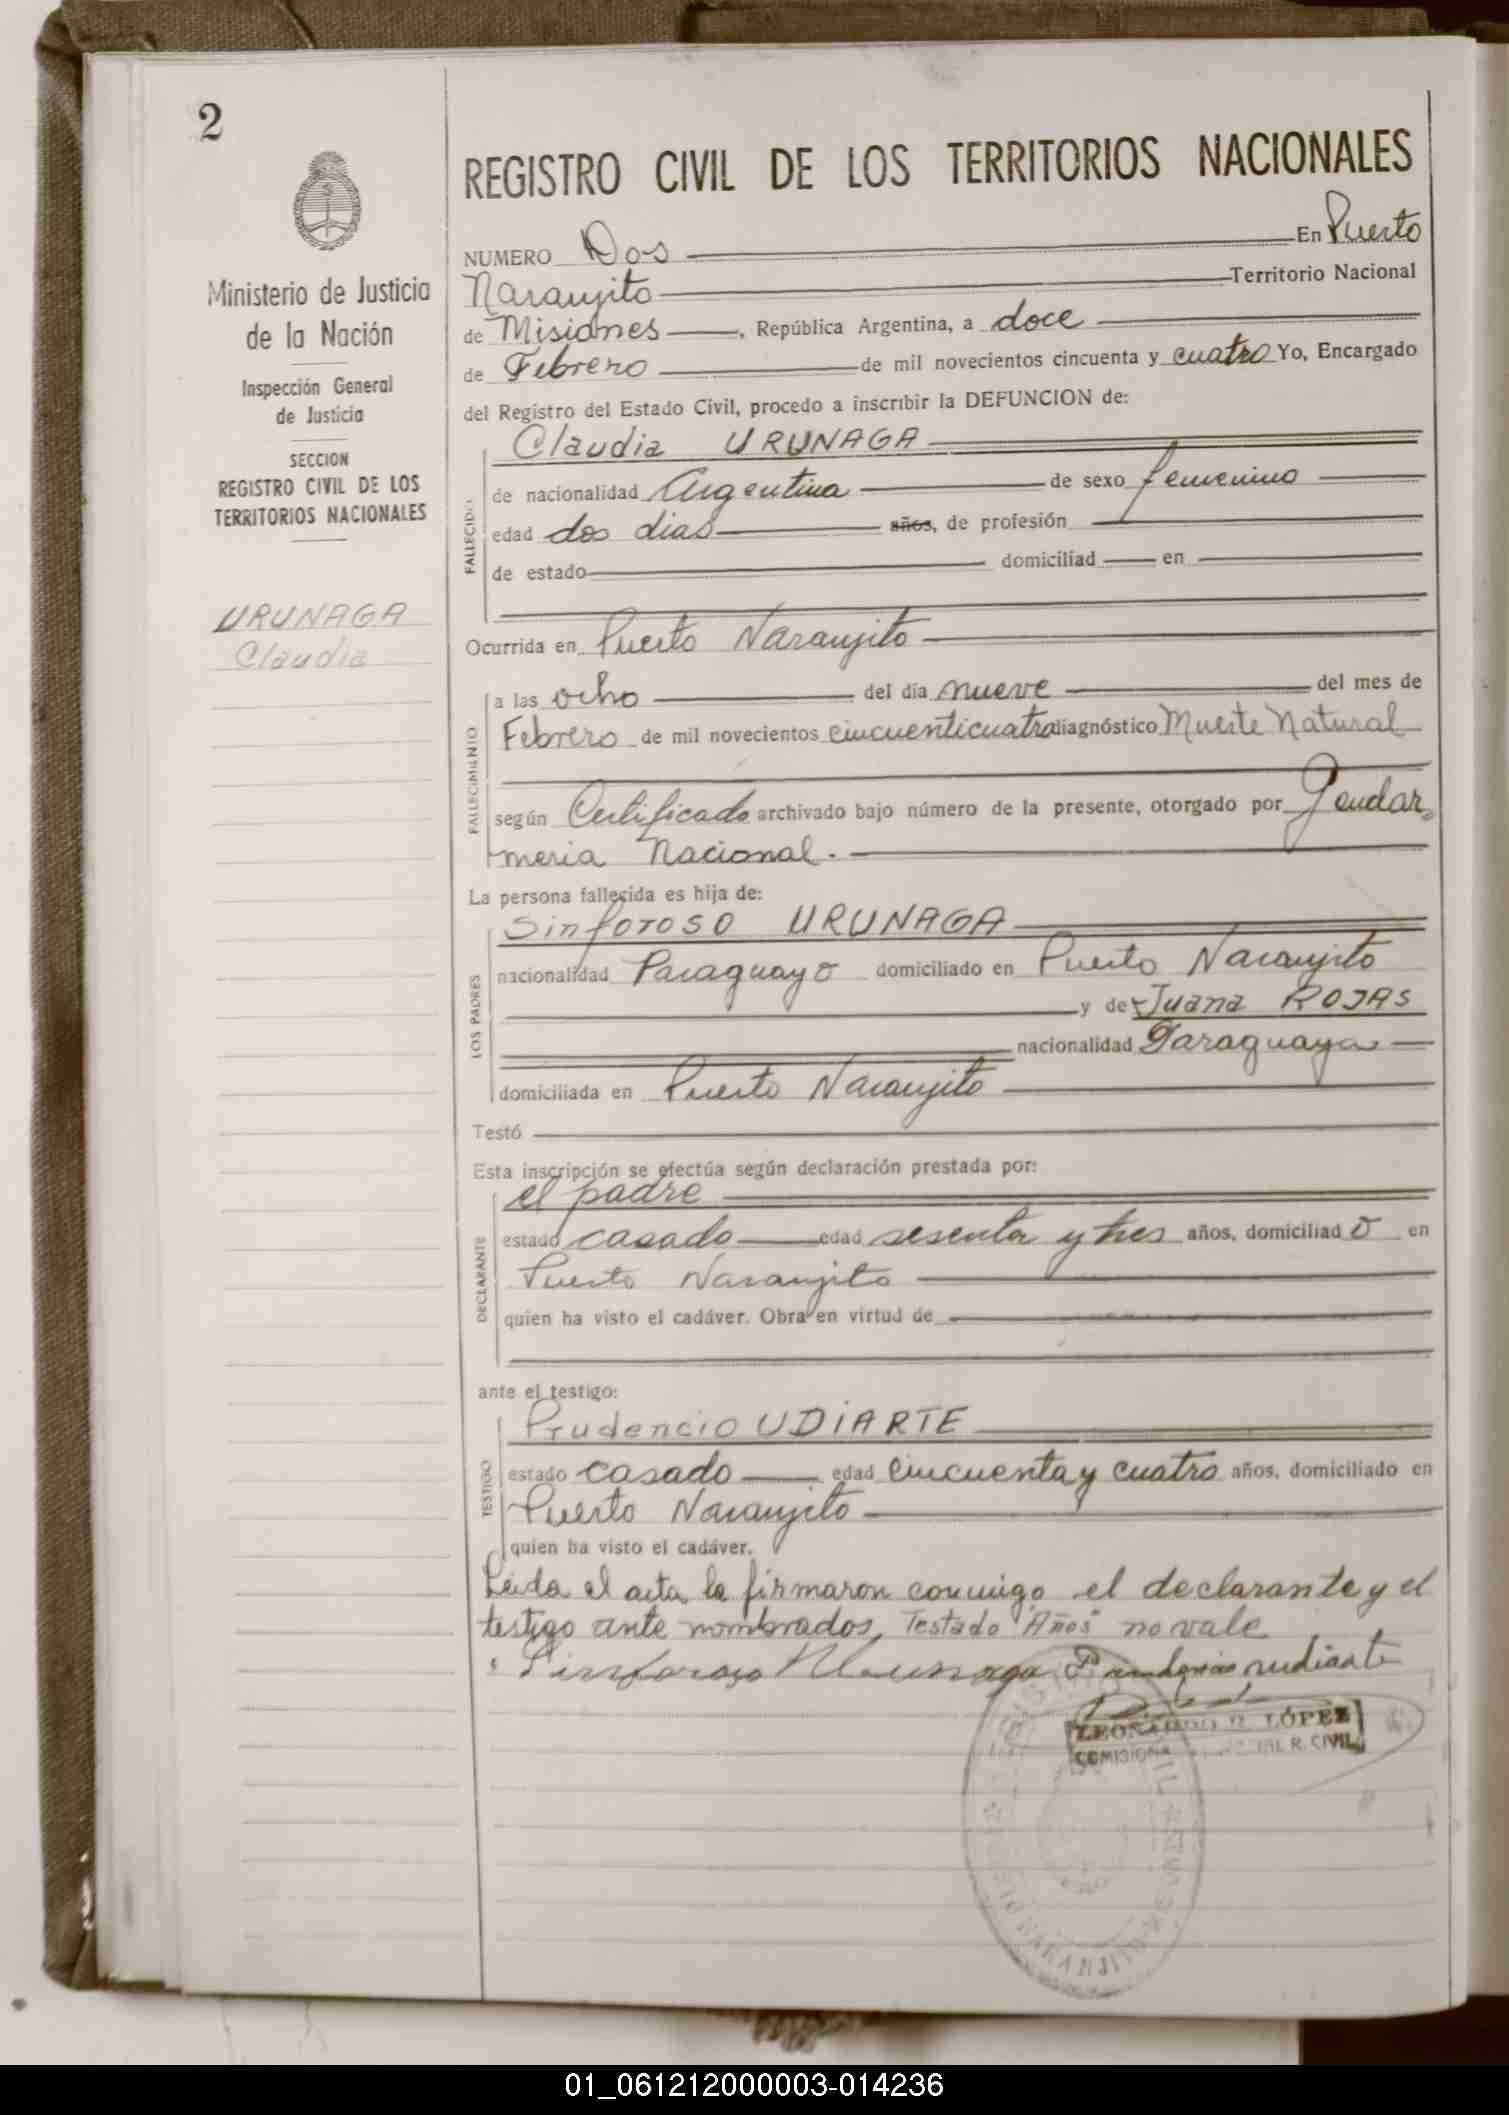 2
REGISTRO CIVIL DE LOS TERRITORIOS NACIONALES
Ministerio de Justicia
de la Nación
Inspección General
de Justicia
SECCION
REGISTRO CIVIL DE LOS
TERRITORIOS NACIONALES
URUNAGA
Claudia
NUMERO Dos En Puerto
Naranjito Territorio Nacional
de Misiones, República Argentina, a doce
de Febrero de mil novecientos cincuenta y cuatro Yo, Encargado
del Registro del Estado Civil, procedo a inscribir la DEFUNCION de:
Claudia URUNAGA
FALLECID
de nacionalidad Argentina de sexo femenino
edad dos dias años, de profesión
de estado domiciliad en
Ocurrida en Puerto Naranjito
FALLECIMIENTO
a las ocho del día nueve del mes de
Febrero de mil novecientos cincuenticuatro diagnóstico Muerte Natural
según Certificado archivado bajo número de la presente, otorgado por Gendar
meria Nacional.
La persona fallecida es hija de:
LOS PADRES
Sinforoso URUNAGA
nacionalidad Paraguayo domiciliado en Puerto Naranjito
y de Juana ROJAS
nacionalidad Paraguaya
domiciliada en Puerto Naranjito
Testó
Esta inscripción se efectúa según declaración prestada por:
DECLARANTE
el padre
estado casado edad sesenta y tres años, domiciliad o en
Puerto Naranjito
quien ha visto el cadáver. Obra en virtud de
ante el testigo:
TESTIGO
Prudencio UDIARTE
estado casado edad cincuenta y cuatro años, domiciliado en
Puerto Naranjito
quien ha visto el cadáver.
Leida el acta la firmaron conmigo el declarante y el
testigo ante nombrados, Testado "Años" no vale
Sinforoso Urunaga Prudencio udiarte
LÓPEZ
R. CIVIL
NARANJITO
01_061212000003-014236